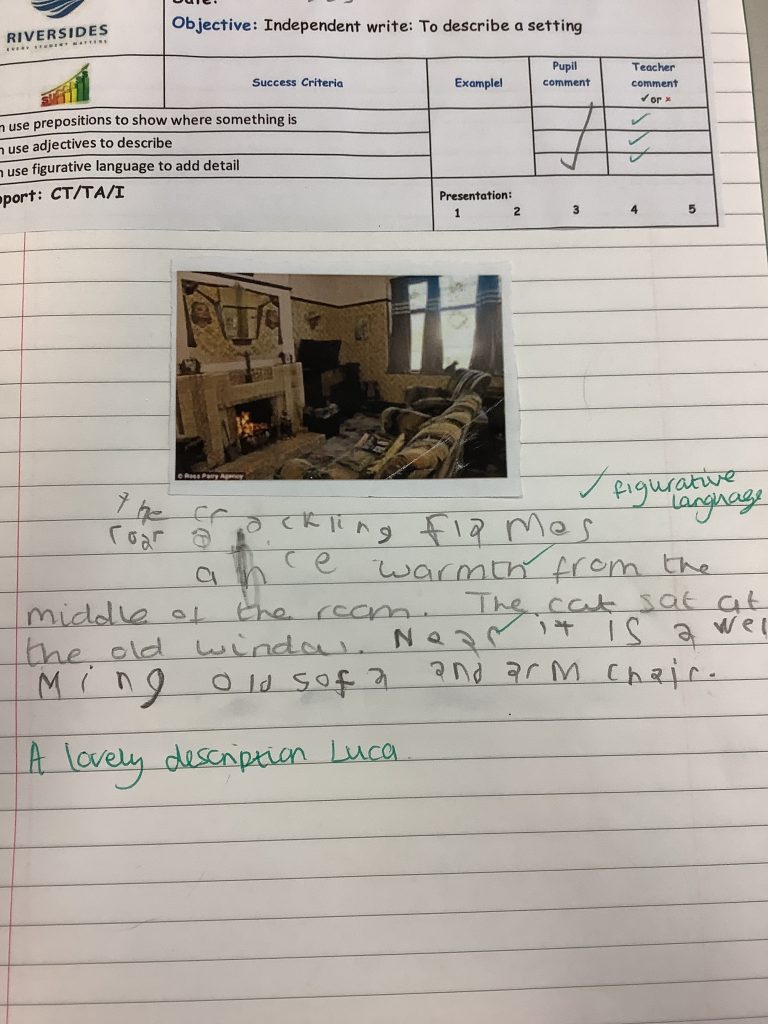 RIVERSIDES
EVERY STUDENT MATTERS
Objective: Independent write: To describe a setting
Success Criteria
Example!
Pupil comment
Teacher comment
✓or ×
use prepositions to show where something is
use adjectives to describe
use figurative language to add detail
pport: CT/TA/I
Presentation:
1 2 3 4 5
© Ross Parry Agency
✓ figurative
language
The crackling flames
roar a
a nce warmth from the
middle of the room. The cat sat at
the old windar. Near it is a wel
Ming old sofa and arm chair.
A lovely description Luca